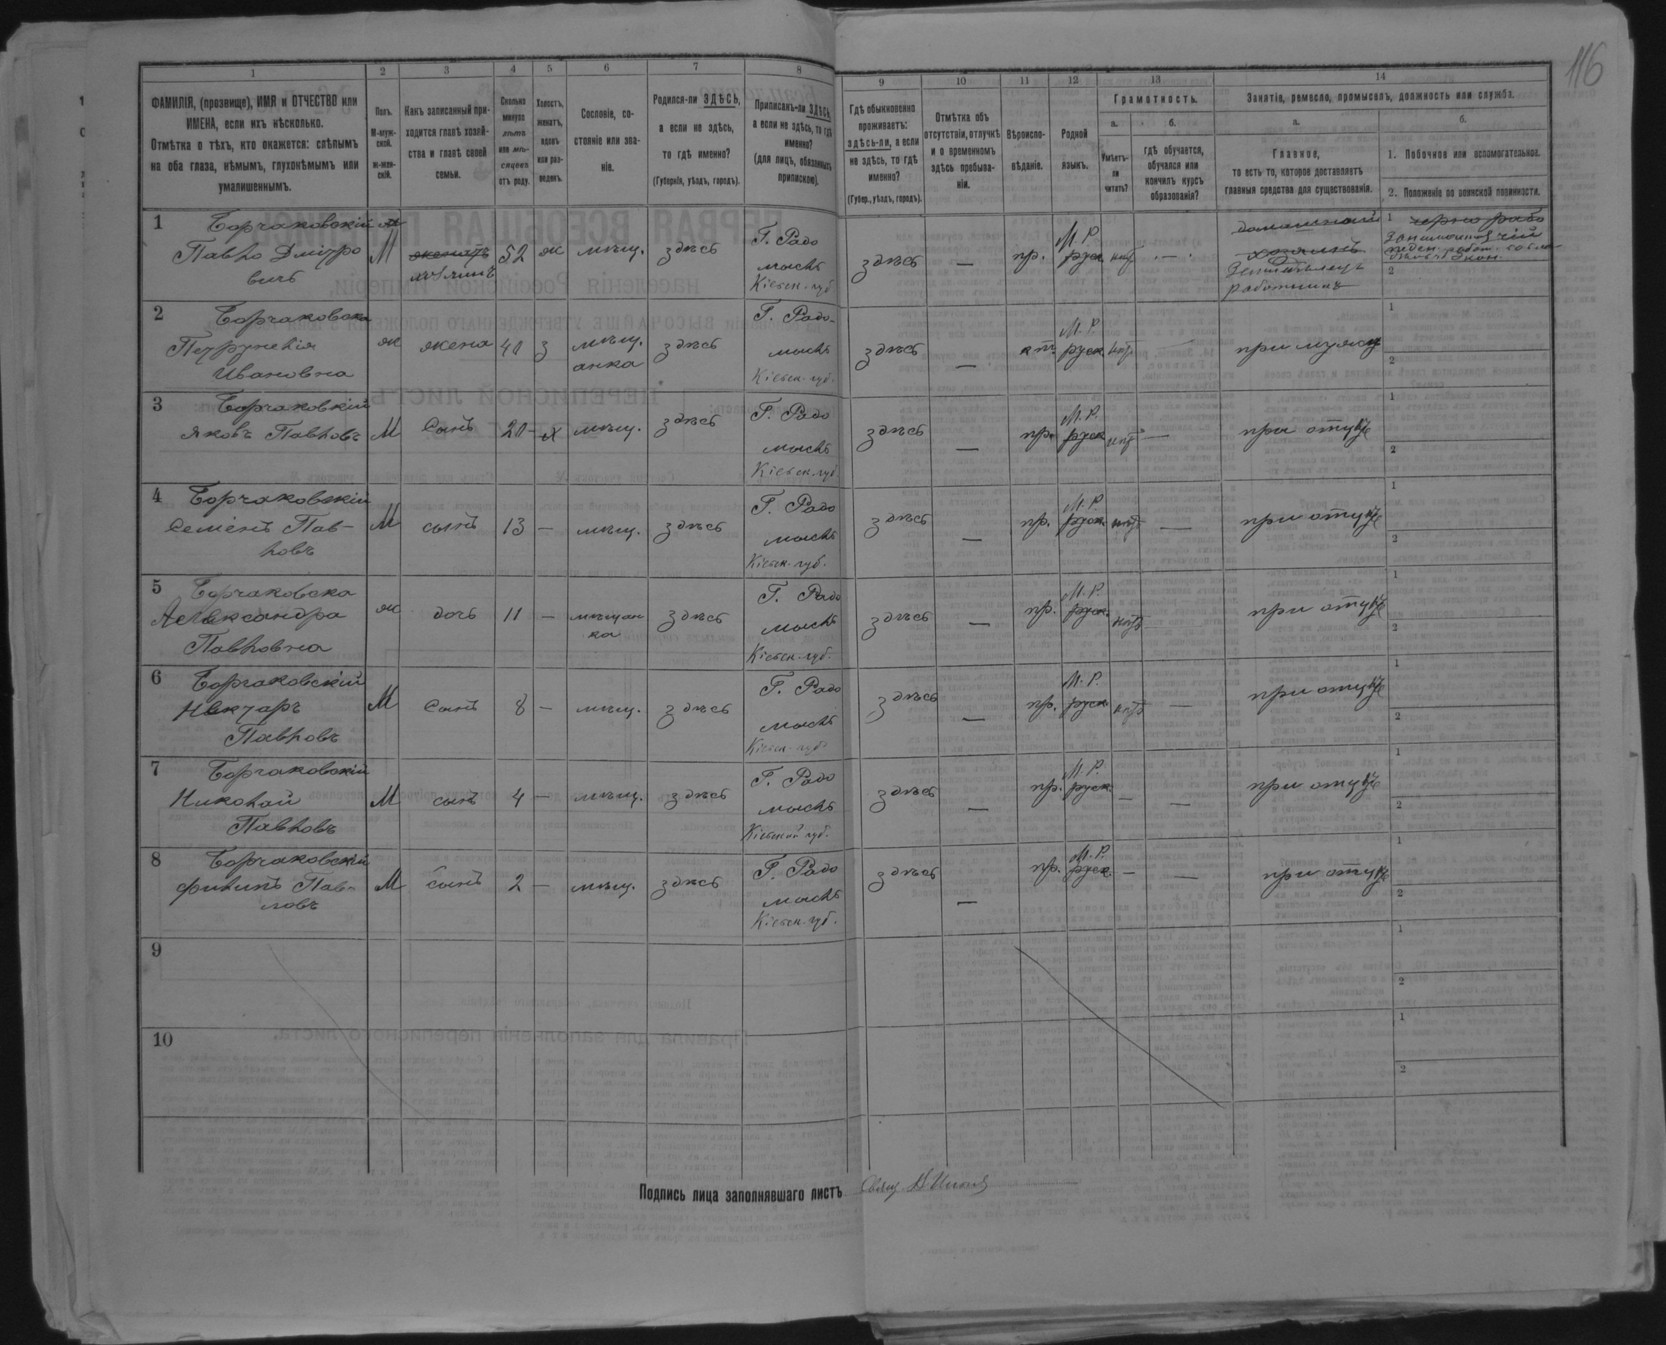 116
1 2 3 4 5 6 7 8 9 10 11 12 13 14
ФАМИЛІЯ, (прозвище), ИМЯ и ОТЧЕСТВО или
ИМЕНА, если ихъ нѣсколько.
Отмѣтка о тѣхъ, кто окажется: слѣпымъ
на оба глаза, нѣмымъ, глухонѣмымъ или
умалишеннымъ.
Полъ.
М-муж-
ской.
ж-жен-
скій.
Какъ записанный при-
ходится главѣ хозяй-
ства и главѣ своей
семьи.
Сколько
минуло
лѣтъ
или мѣ-
сяцевъ
отъ роду.
Холостъ,
женатъ,
вдовъ
или раз-
веденъ.
Сословіе, со-
стояніе или зва-
ніе.
Родился-ли ЗДѢСЬ,
а если не здѣсь,
то гдѣ именно?
(Губернія, уѣздъ, городъ).
Приписанъ-ли ЗДѢСЬ,
а если не здѣсь, то гдѣ
именно?
(для лицъ, обязанныхъ
припискою).
Гдѣ обыкновенно
проживаетъ:
здѣсь-ли, а если
не здѣсь, то гдѣ
именно?
(Губер., уѣздъ, городъ).
Отмѣтка объ
отсутствіи, отлучкѣ
и о временномъ
здѣсь пребыва-
ніи.
Вѣроиспо-
вѣданіе.
Родной
языкъ.
Грамотность.
а.
Умѣетъ-
ли
читать?
б.
гдѣ обучается,
обучался или
кончилъ курсъ
образованія?
Занятіе, ремесло, промыселъ, должность или служба.
а.
Главное,
то есть то, которое доставляетъ
главныя средства для существованія.
б.
1. Побочное или вспомогательное.
2. Положеніе по воинской повинности.
1 Борчаковскій
Павло Дмитро
вичъ
М женатъ 52 ж мѣщ. здѣсь
Г. Радо
мысль
Кіевск. губ.
здѣсь — пр. М. Р. руск нѣтъ —
домашній
хозяинъ
работникъ
1
2
2 Борчаковска
Петрунелія
Ивановна
ж жена 40 з мѣщ.
анка
здѣсь
Г. Радо-
мысль
Кіевск. губ.
здѣсь — кт. М. Р. руск нѣтъ — при мужѣ
1
2
3 Борчаковскій
Яковъ Павловъ
М сынъ 20 х мѣщ. здѣсь
Г. Радо
мысль
Кіевск. губ
здѣсь — пр. М. Р. руск нѣтъ — при отцѣ
1
2
4 Борчаковскій
Семенъ Пав-
ловъ
М сынъ 13 — мѣщ. здѣсь
Г. Радо
мысль
Кіевск. губ.
здѣсь — пр. М. Р. руск нѣтъ — при отцѣ
1
2
5 Борчаковска
Александра
Павловна
ж дочь 11 — мѣщан
ка
здѣсь
Г. Радо
мысль
Кіевск. губ.
здѣсь — пр. М. Р. руск. нѣтъ при отцѣ
1
2
6 Борчаковскій
Нектаръ
Павловъ
М сынъ 8 — мѣщ. здѣсь
Г. Радо
мысль
Кіевск. губ.
здѣсь — пр. М. Р. руск нѣтъ — при отцѣ
1
2
7 Борчаковскій
Николай
Павловъ
М сынъ 4 — мѣщ. здѣсь
Г. Радо
мысль
Кіевской губ.
здѣсь — пр. М. Р. руск — — при отцѣ
1
2
8 Борчаковскій
Филипъ Пав-
ловъ
М сынъ 2 — мѣщ. здѣсь
Г. Радо
мысль
Кіевск. губ.
здѣсь — пр. М. Р. руск — — при отцѣ
1
2
9
1
2
10
1
2
Подпись лица заполнявшаго листъ